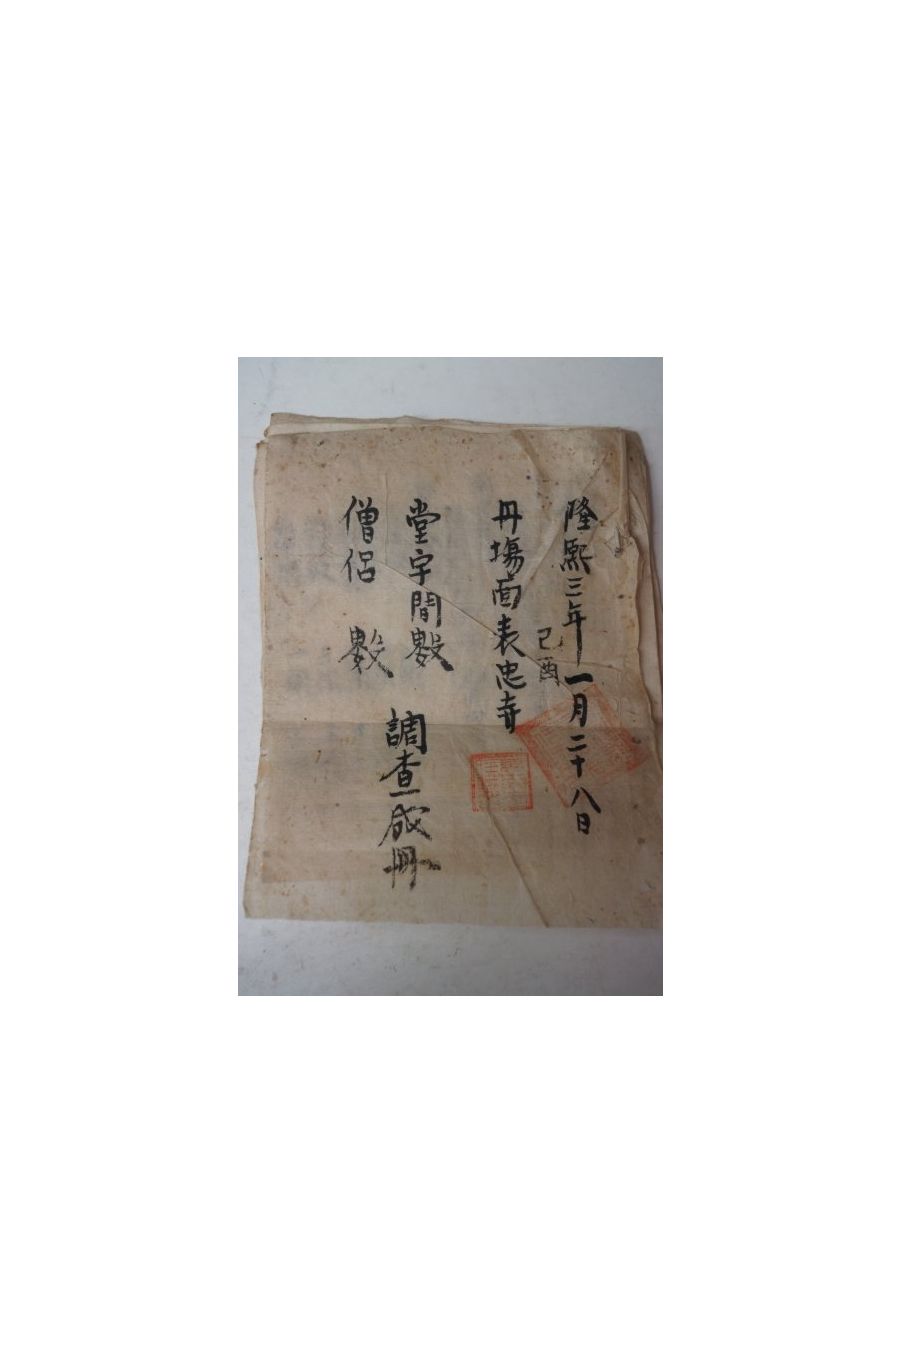 隆熙三年一月二十八日
己酉
丹塲面表忠寺
堂宇間數
僧侶 數
調査成冊